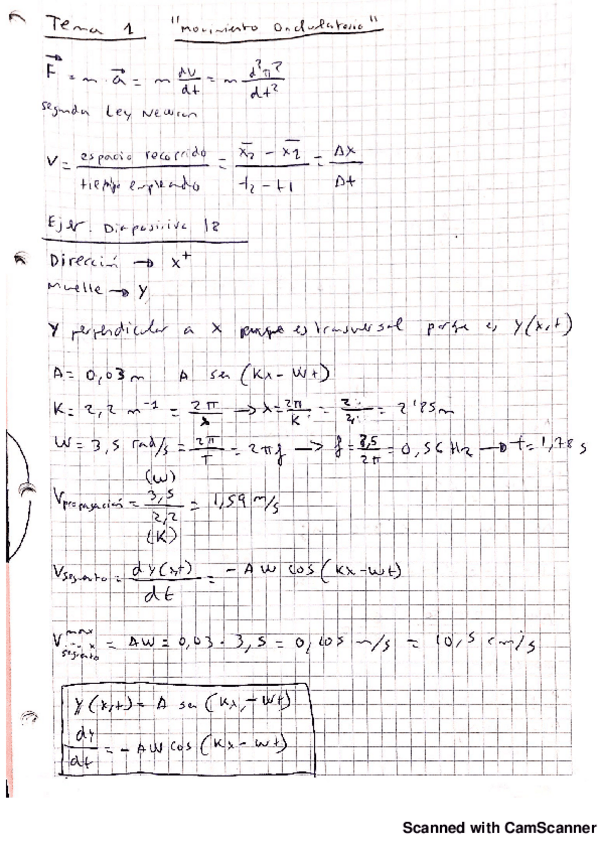 Tema 1 "Movimiento Ondulatorio"
F⃗ = m · a⃗ = m dv/dt = m d²r⃗/dt²
segunda Ley Newton
V = espacio recorrido / tiempo empleado = x̄2 − x̄1 / t2 − t1 = Δx / Δt
Ejer. Diapositiva 12
Dirección → x⁺
Muelle → y
y perpendicular a x porque es transversal porque es y(x,t)
A = 0,03 m A sen (Kx − Wt)
K = 2,2 m⁻¹ = 2π/λ → λ = 2π/K = = 2'85 m
W = 3,5 rad/s = 2π/T = 2πf → f = 3,5/2π = 0,56 Hz → T = 1,78 s
Vpropagación = (W) 3,5 / 2,2 (K) = 1,59 m/s
Vsegmento = dy(x,t)/dt = −AW cos (Kx − Wt)
V max segmento = AW = 0,03 · 3,5 = 0,105 m/s = 10,5 cm/s
y(x,t) = A sen (Kx − Wt)
dy/dt = −AW cos (Kx − Wt)
Scanned with CamScanner